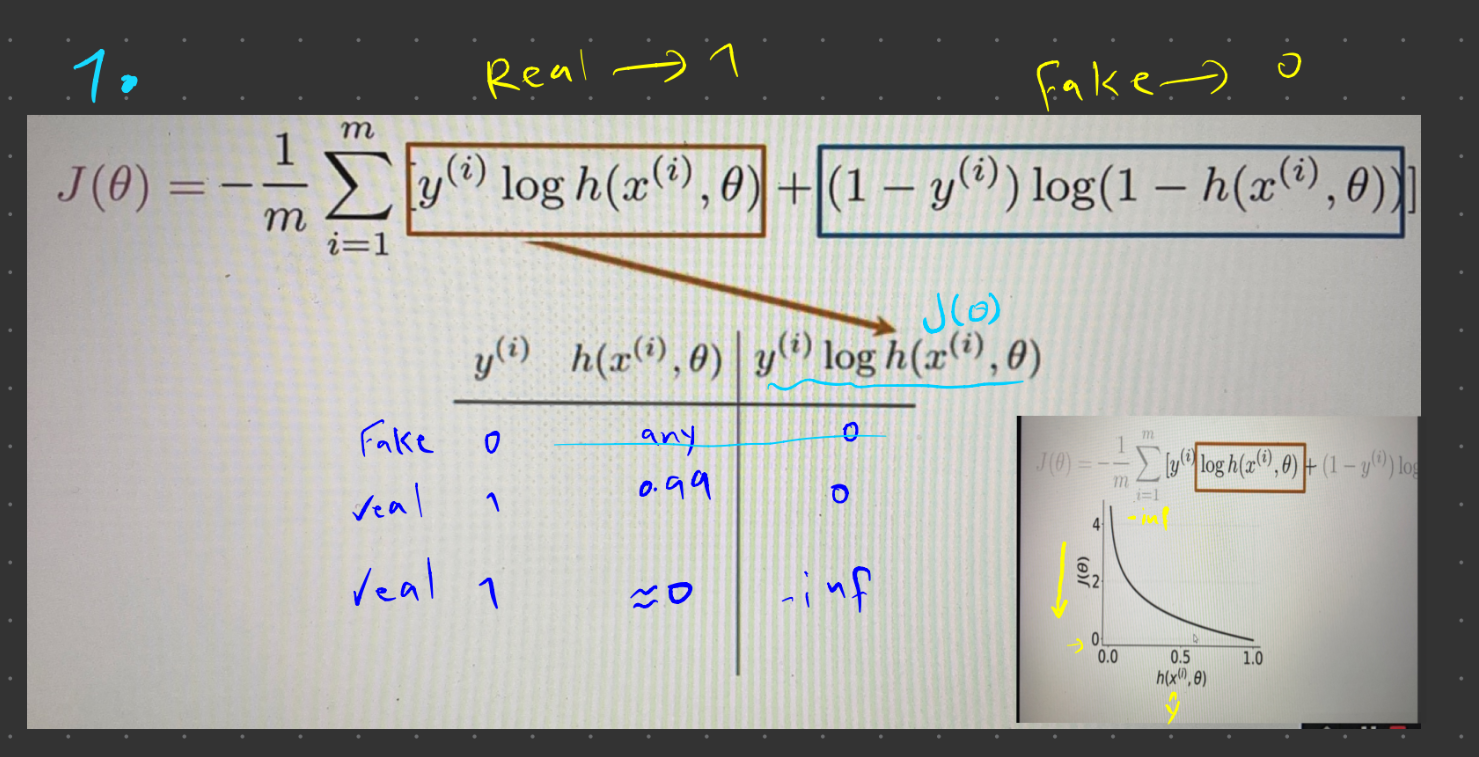 1.
Real → 1
Fake → 0
J(θ) = -\frac{1}{m} \sum_{i=1}^{m} [y^{(i)} log h(x^{(i)}, θ) + (1 − y^{(i)}) log(1 − h(x^{(i)}, θ))]
J(θ)
y^{(i)} h(x^{(i)}, θ) | y^{(i)} log h(x^{(i)}, θ)
Fake 0 any 0
real 1 0.99 0
real 1 ≈0 -inf
J(θ) = -\frac{1}{m} \sum_{i=1}^{m} [y^{(i)} log h(x^{(i)}, θ) + (1 − y^{(i)}) log
-inf
4
2
0
J(θ)
→
0.0 0.5 1.0
h(x^{(i)}, θ)
ŷ